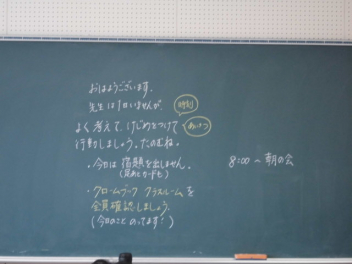 おはようございます。
先生は1日いませんが、
時刻
よく考えて、けじめをつけて
あいさつ
行動しましょう。たのむね。
・今日は宿題を出しません。
・クロームブック クラスルームを
全員確認しましょう。
(今日のこと のってます!)
8:00 〜 朝の会